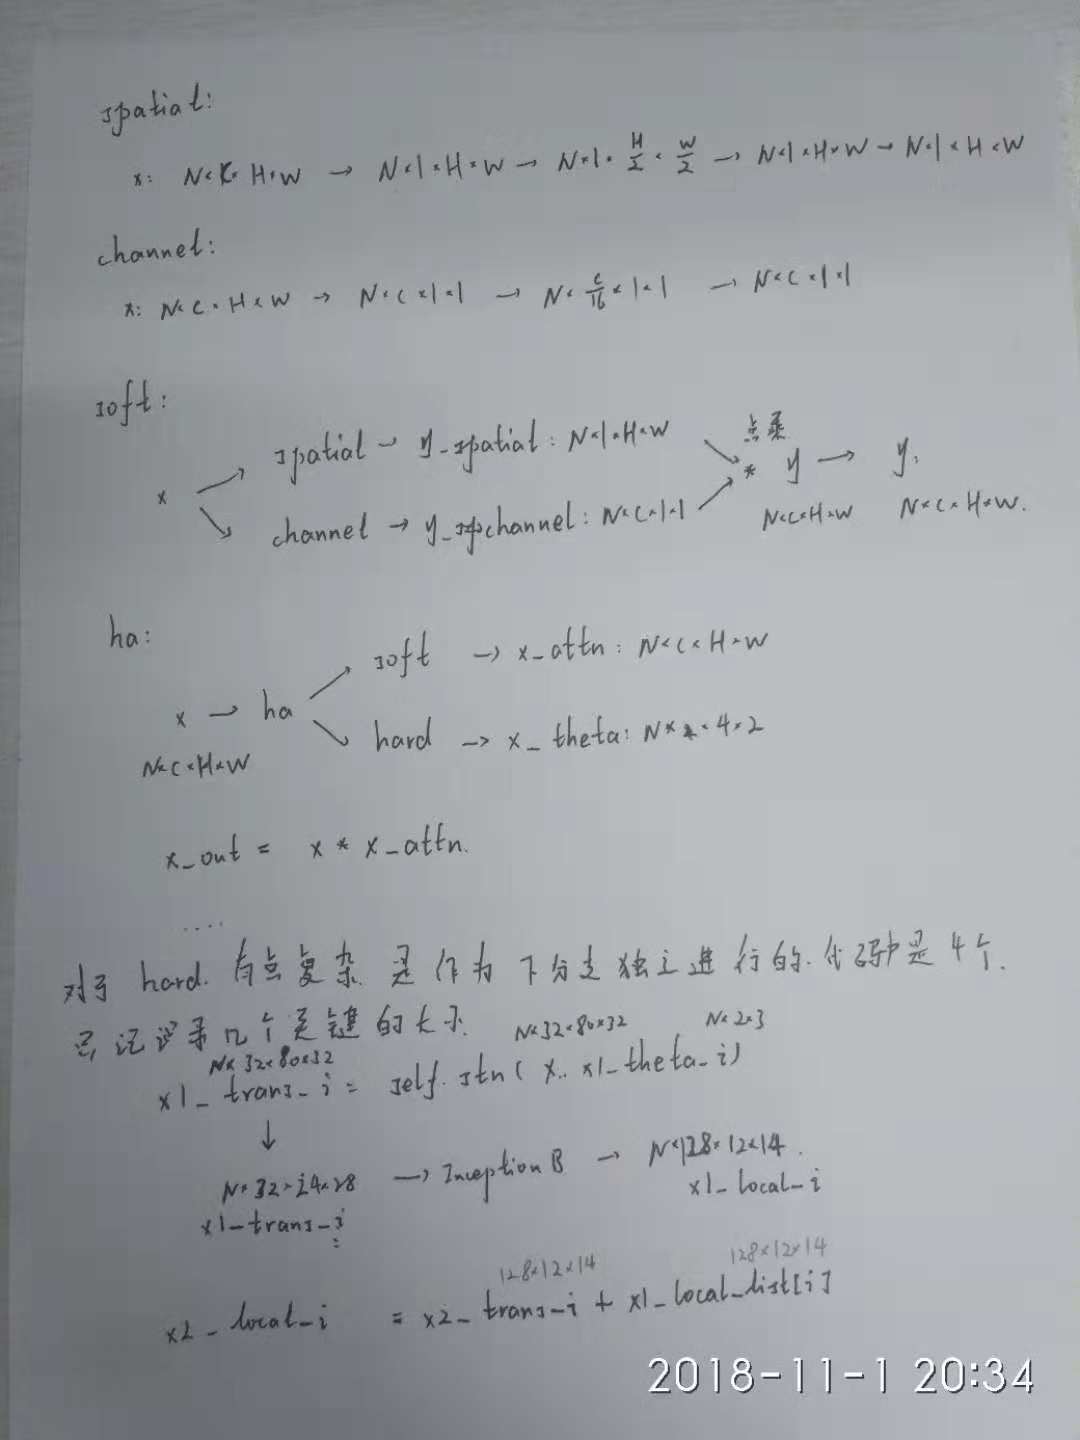 spatial:
x: N×C×H×W → N×1×H×W → N×1×H/2×W/2 → N×1×H×W → N×1×H×W
channel:
x: N×C×H×W → N×C×1×1 → N×C/16×1×1 → N×C×1×1
soft:
点乘
spatial → y_spatial: N×1×H×W
x * y → y.
channel → y_channel: N×C×1×1
N×C×H×W N×C×H×W.
ha:
soft → x_attn: N×C×H×W
x → ha
hard → x_theta: N×4×2
N×C×H×W
x_out = x * x_attn.
....
对于 hard. 有点复杂. 是作为下分支独立进行的. 代码中是4个.
只记录几个关键的大小.
N×32×80×32 N×32×80×32 N×2×3
x1_trans_i = self.stn( x, x1_theta_i)
↓
N×32×24×28 → Inception B → N×128×12×14.
x1_trans_i x1_local_i
128×12×14 128×12×14
x2_local_i = x2_trans_i + x1_local_list[i]
2018-11-1 20:34